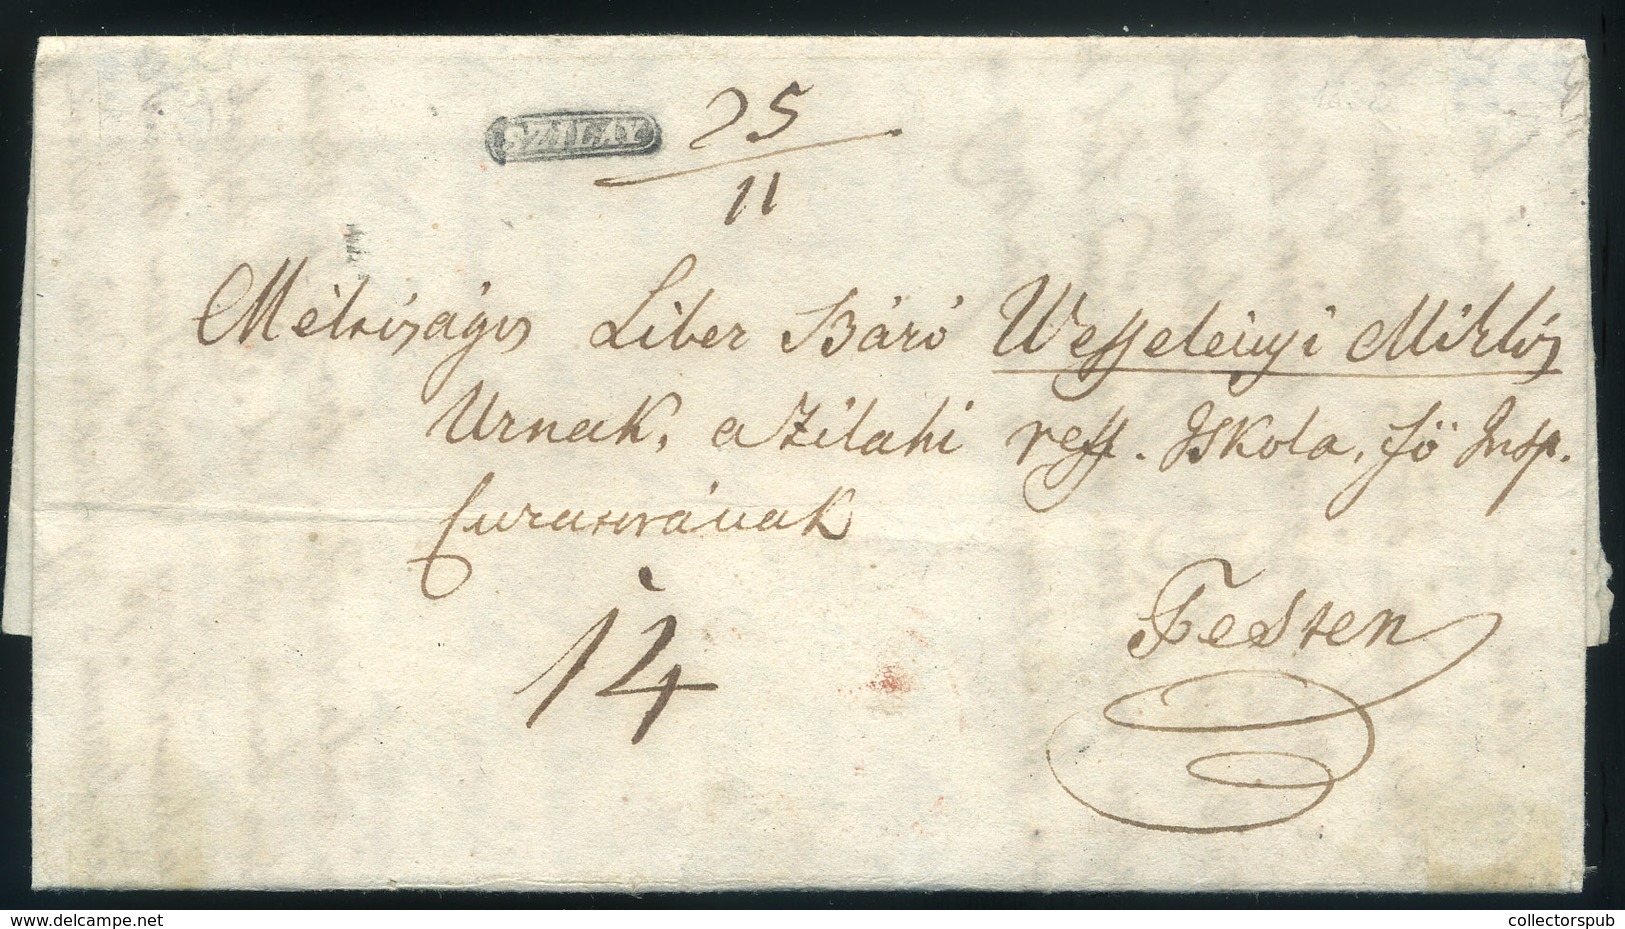 SZILAY
25
11
Méltóságos Liber Báró Wesselényi Miklós
Urnak, a Zilahi reff. Iskola, fö Insp.
Curatorának
14
Pesten
delcampe.net
collectorspub